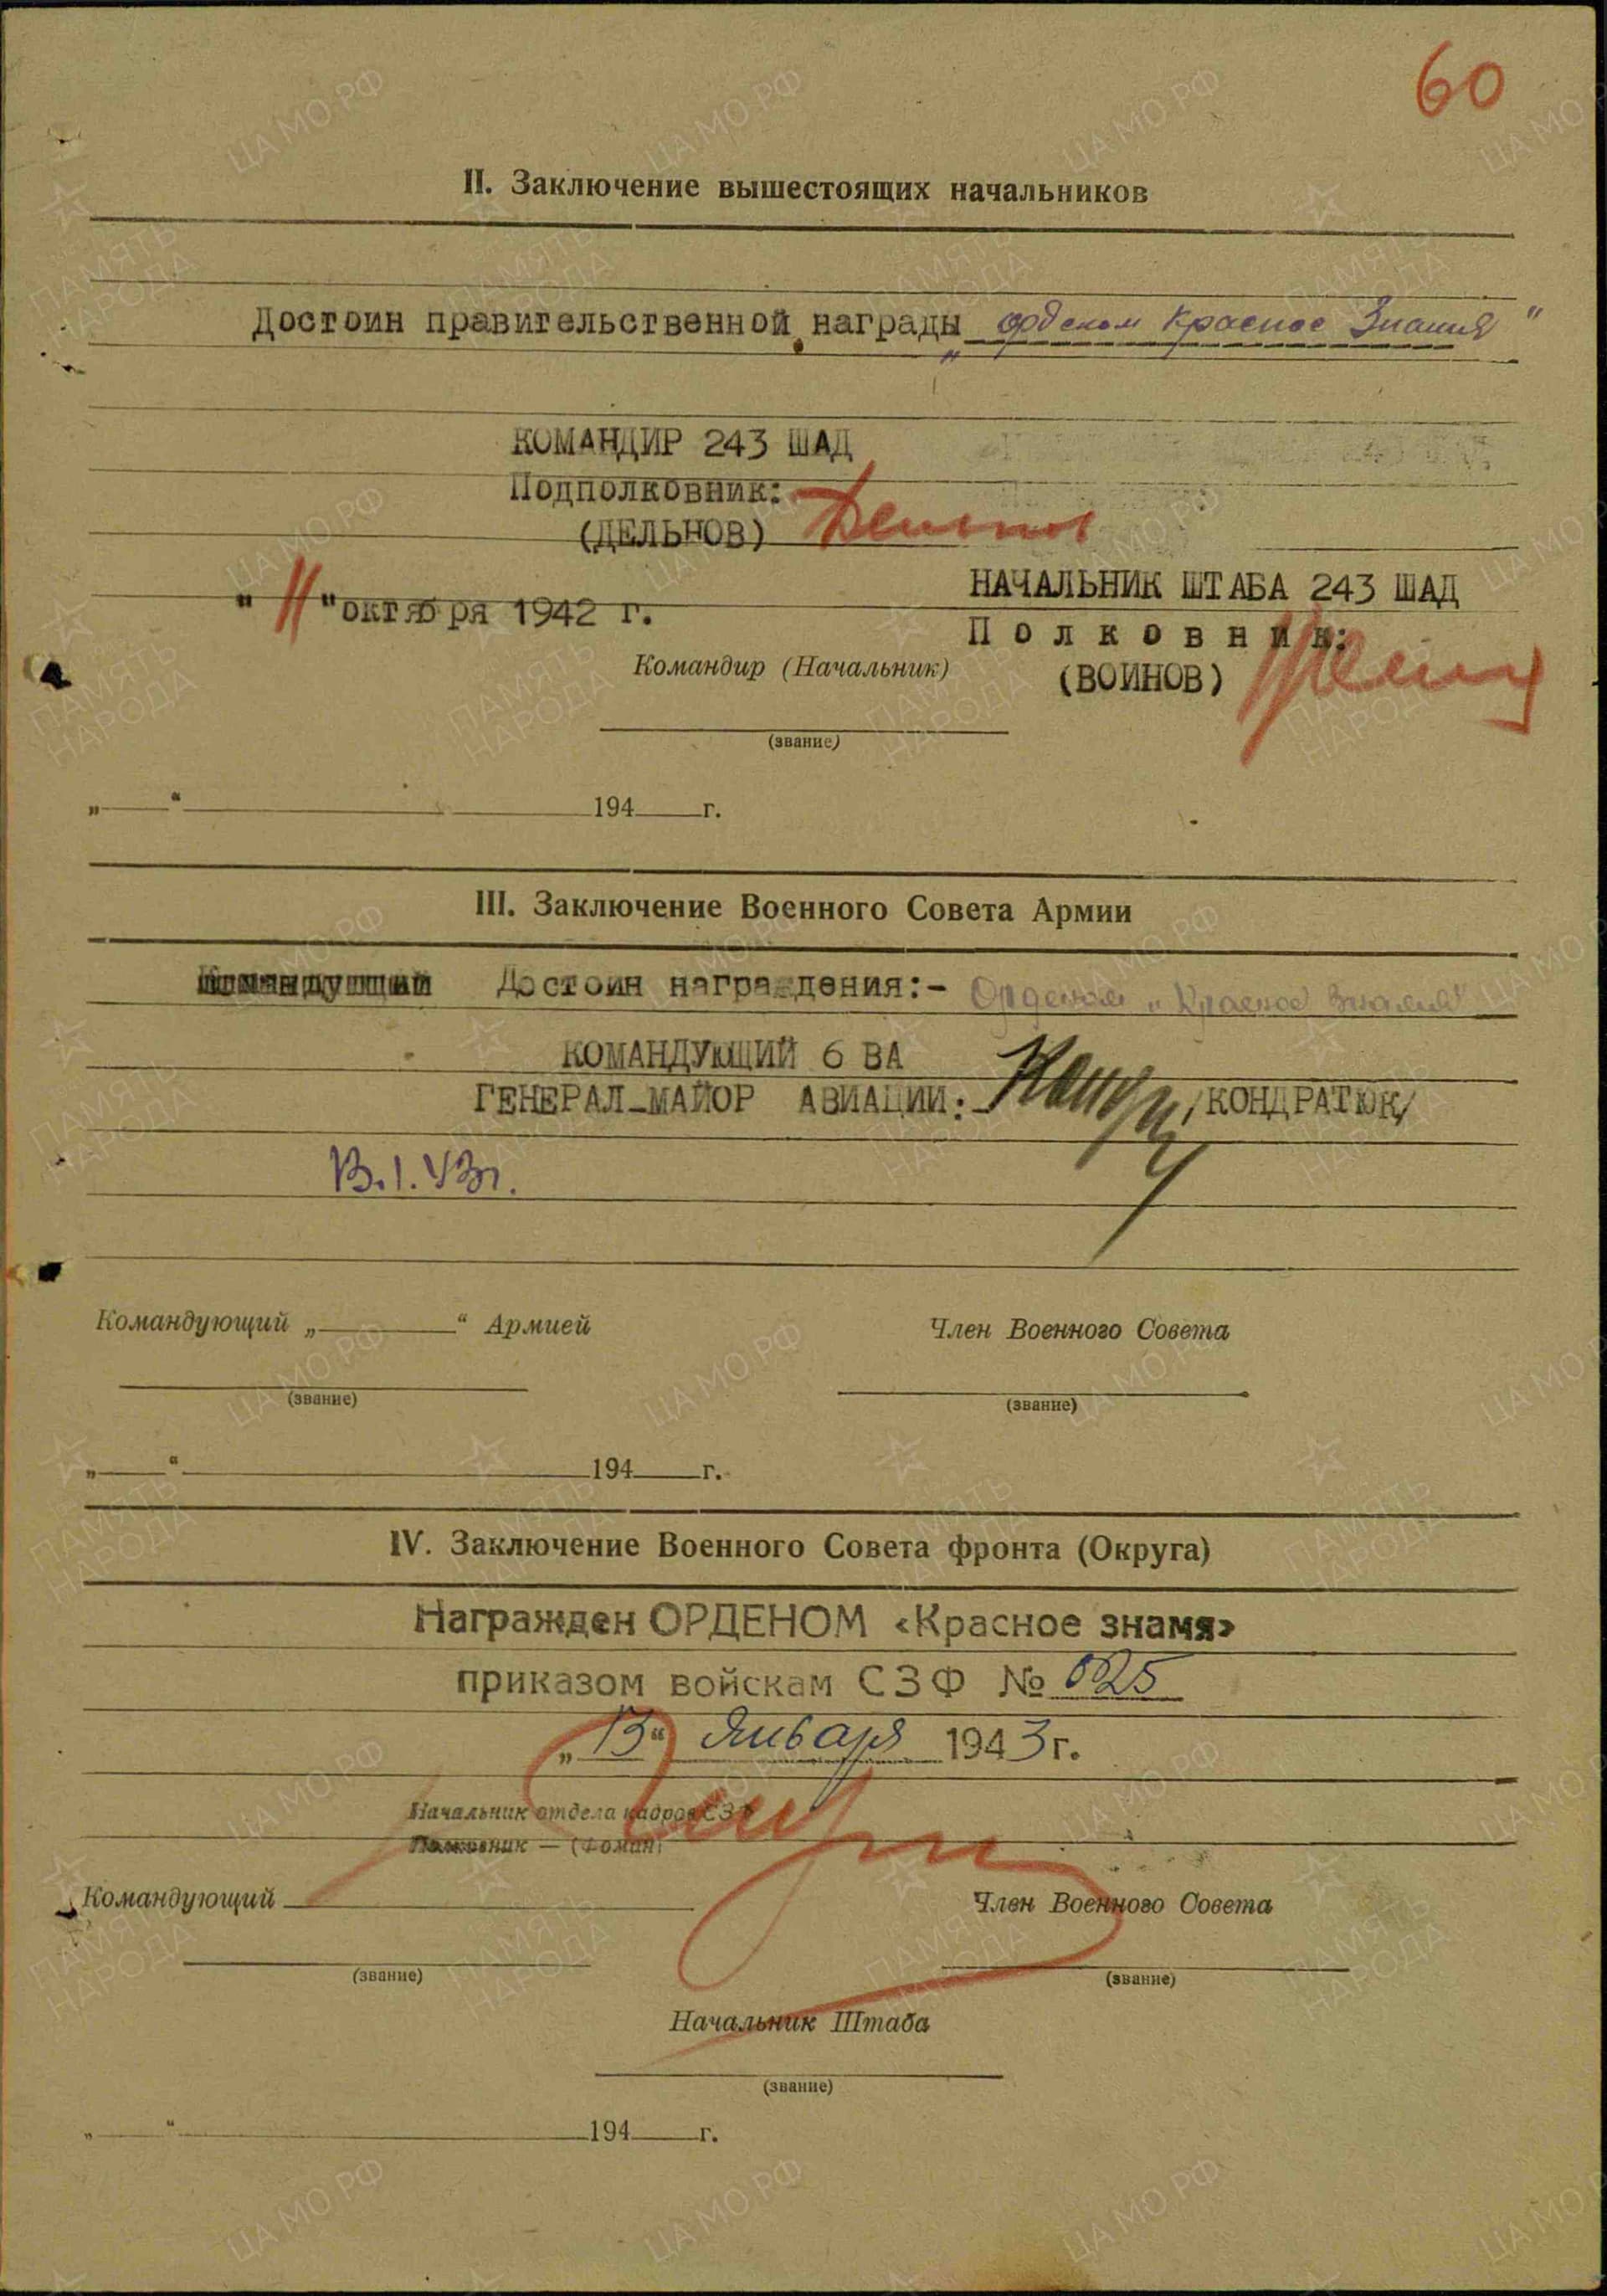 60
II. Заключение вышестоящих начальников
Достоин правительственной награды „орденом Красное Знамя"
КОМАНДИР 243 ШАД
Подполковник:
(ДЕЛЬНОВ)
"11" октября 1942 г.
НАЧАЛЬНИК ШТАБА 243 ШАД
Полковник:
(ВОИНОВ)
Командир (Начальник)
(звание)
„ “ 194 г.
III. Заключение Военного Совета Армии
Командующий Достоин награждения:- Орденом „Красное Знамя"
КОМАНДУЮЩИЙ 6 ВА
ГЕНЕРАЛ-МАЙОР АВИАЦИИ:- /КОНДРАТЮК/
13.1.43г.
Командующий „ “ Армией
Член Военного Совета
(звание) (звание)
„ “ 194 г.
IV. Заключение Военного Совета фронта (Округа)
Награжден ОРДЕНОМ «Красное знамя»
приказом войскам СЗФ № 025
„13“ Января 1943 г.
Начальник отдела кадров СЗФ
Полковник — (Фомин)
Командующий
Член Военного Совета
(звание) (звание)
Начальник Штаба
(звание)
„ “ 194 г.
ЦАМО РФ
ПАМЯТЬ НАРОДА